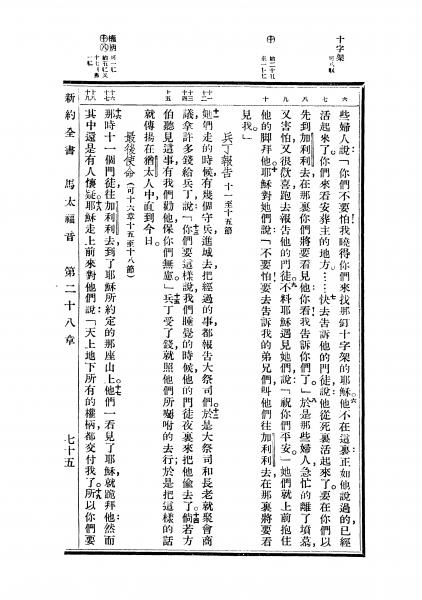 十字架
可八𠃊
中
權柄
六
些婦人說、「你們不要怕我曉得你們來找那釘十字架的耶穌。他不在這裏、正如他說過的、已經
七
活起來了。你們來看安葬主的地方……快去告訴他的門徒、說他從死裏活起來了。要在你們以
八
先到加利利去、在那裏你們將要看見他你看我告訴你們了。」於是那些婦人、急忙的離了墳墓、
九
又害怕又很歡喜、跑去報告他的門徒。不料耶穌遇見她們、說「祝你們平安。」她們就上前抱住
十
他的脚拜他。耶穌對她們說、「不要怕要去告訴我的弟兄們、叫他們往加利利去、在那裏將要看
見我」。
兵丁報告 十一至十五節
十一
十二
她們走的時候、有幾個守兵進城去、把經過的事都報告大祭司們。於是大祭司和長老就聚會商
十三
十四
議、拿許多錢給兵丁說、「你們要這樣說、我們睡覺的時候、他的門徒夜裏來把他偷去了。倘若方
十五
伯聽見這事、有我們勸他、保你們無慮。」兵丁受了錢、就照他們所囑咐的去行、於是把這樣的話
就傳揚在猶太人中、直到今日。
最後使命(可十六章十五至十八節)
十六
十七
那時十一個門徒往加利利去、到了耶穌所約定的那座山上。他們一看見了耶穌就跪拜他、然而
十八
十九
其中還是有人懷疑。耶穌走上前來、對他們說、「天上地下所有的權柄、都交付我了。所以你們要
新約全書 馬太福音 第二十八章 七十五